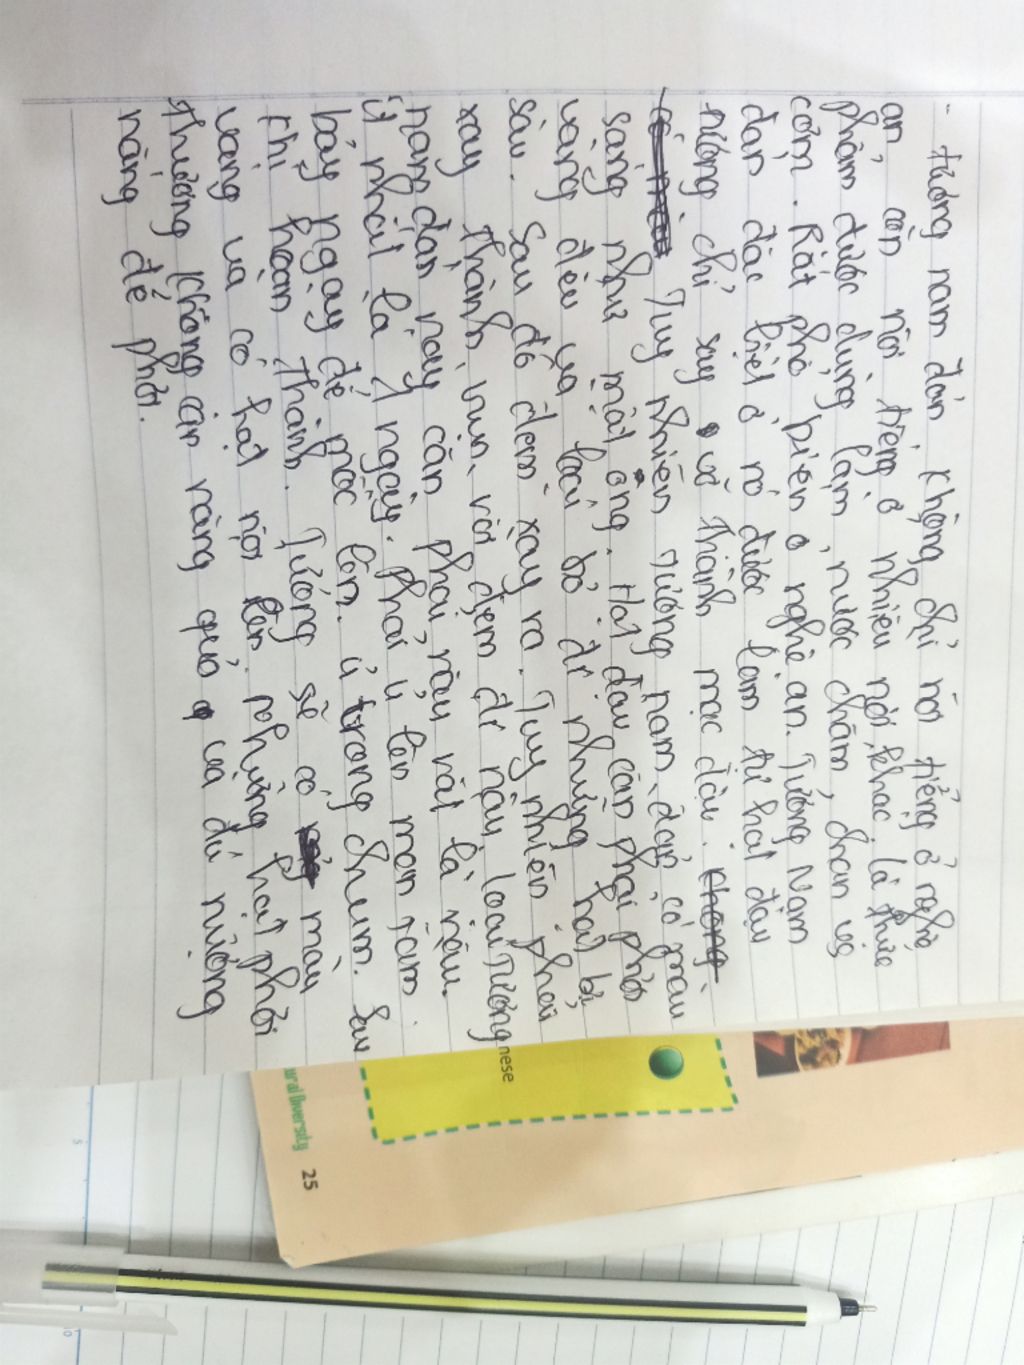 - tương nam đàn không chỉ nổi tiếng ở nghệ
an, còn nổi tiếng ở nhiều nơi khác, là thực
phẩm được dùng làm, nước chấm, chan với
cơm. Rất phổ biến ở nghệ an. Tương Nam
đàn đặc biệt ở nó được làm từ hạt đậu
nương chỉ say vỡ thành mạc đậu.
Tuy nhiên tương nam đàn, có màu
sang như mật ong. Hạt đậu cần phải phơi
vàng đều và loại bỏ đi những hạt bị
sâu. Sau đó đem xay ra. Tuy nhiên phải
xay thành vụn rồi đem đi nấu loại tương
nam đàn này cần phải nấu rất là nâu.
ít nhất là 1 ngày. Phải ủ lên men rằm
bảy ngày để mốc lên. ủ trong chum. Sau
khi hoàn thành. Tương sẽ có màu
vàng và có hạt nổi lên. những hạt phơi
thường không cần nắng quá và đủ nương
nắng để phơi.
nese
ural Diversity 25